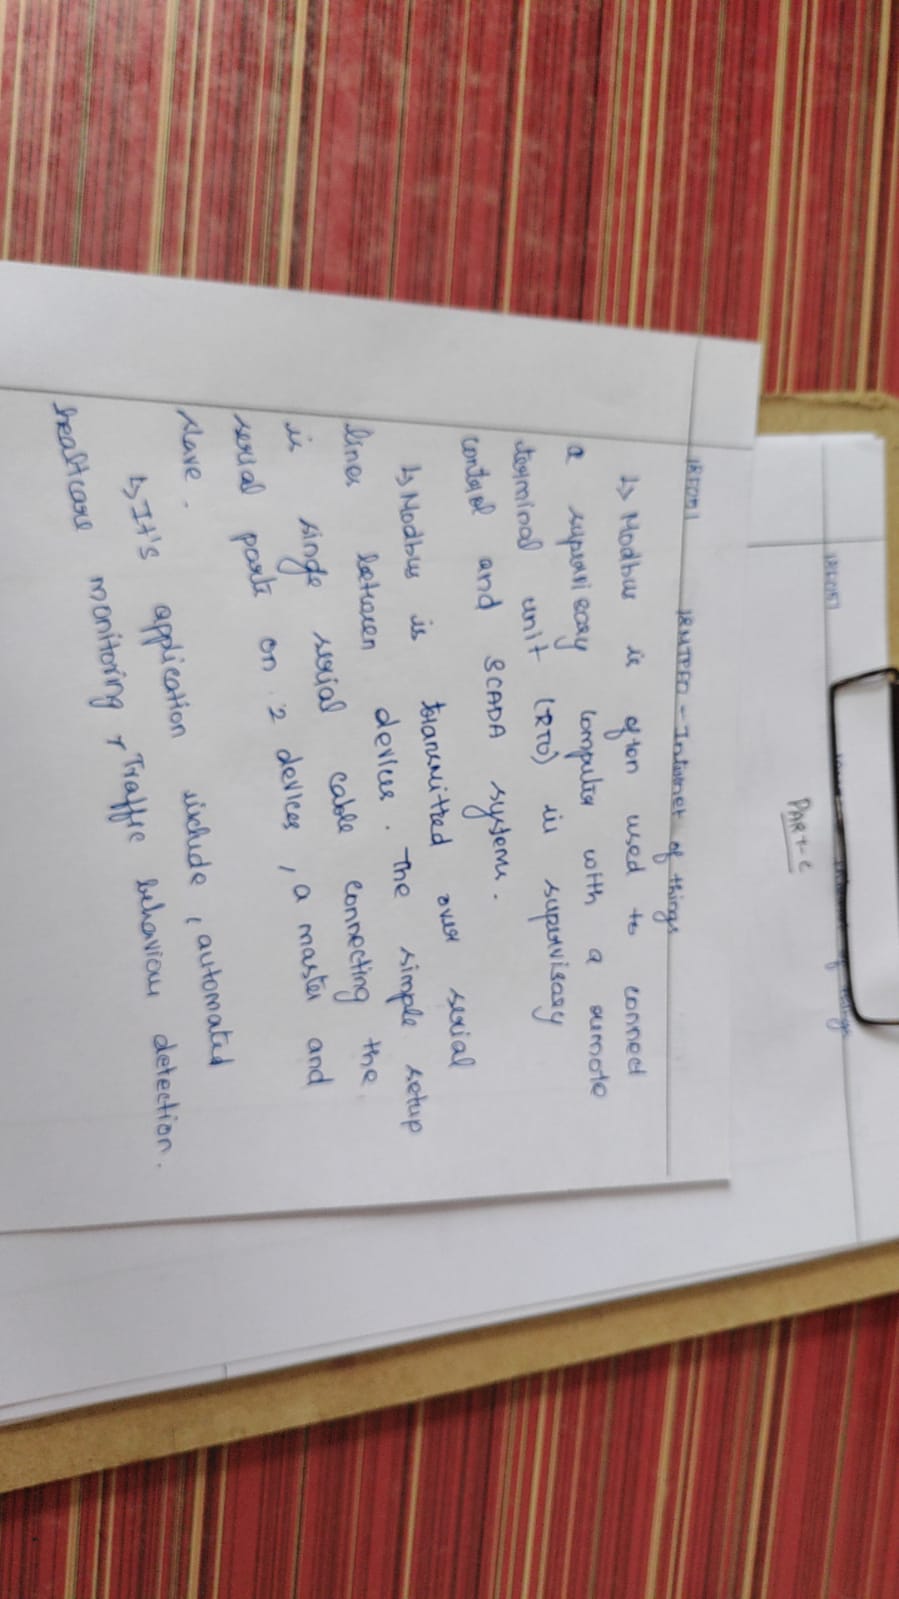 18MTPFO - Internet of things
↳ Modbus is ofton used to connect
a supervisory computer with a remote
terminal unit (RTO) in supervisory
control and SCADA systems.
↳ Modbus is transmitted over serial
lines between devices. The simple setup
is singe serial cable connecting the
serial ports on 2 devices, a master and
slave.
↳ It's application include, automated
healtcare monitoring & Traffic behaviour detection.
PART-C